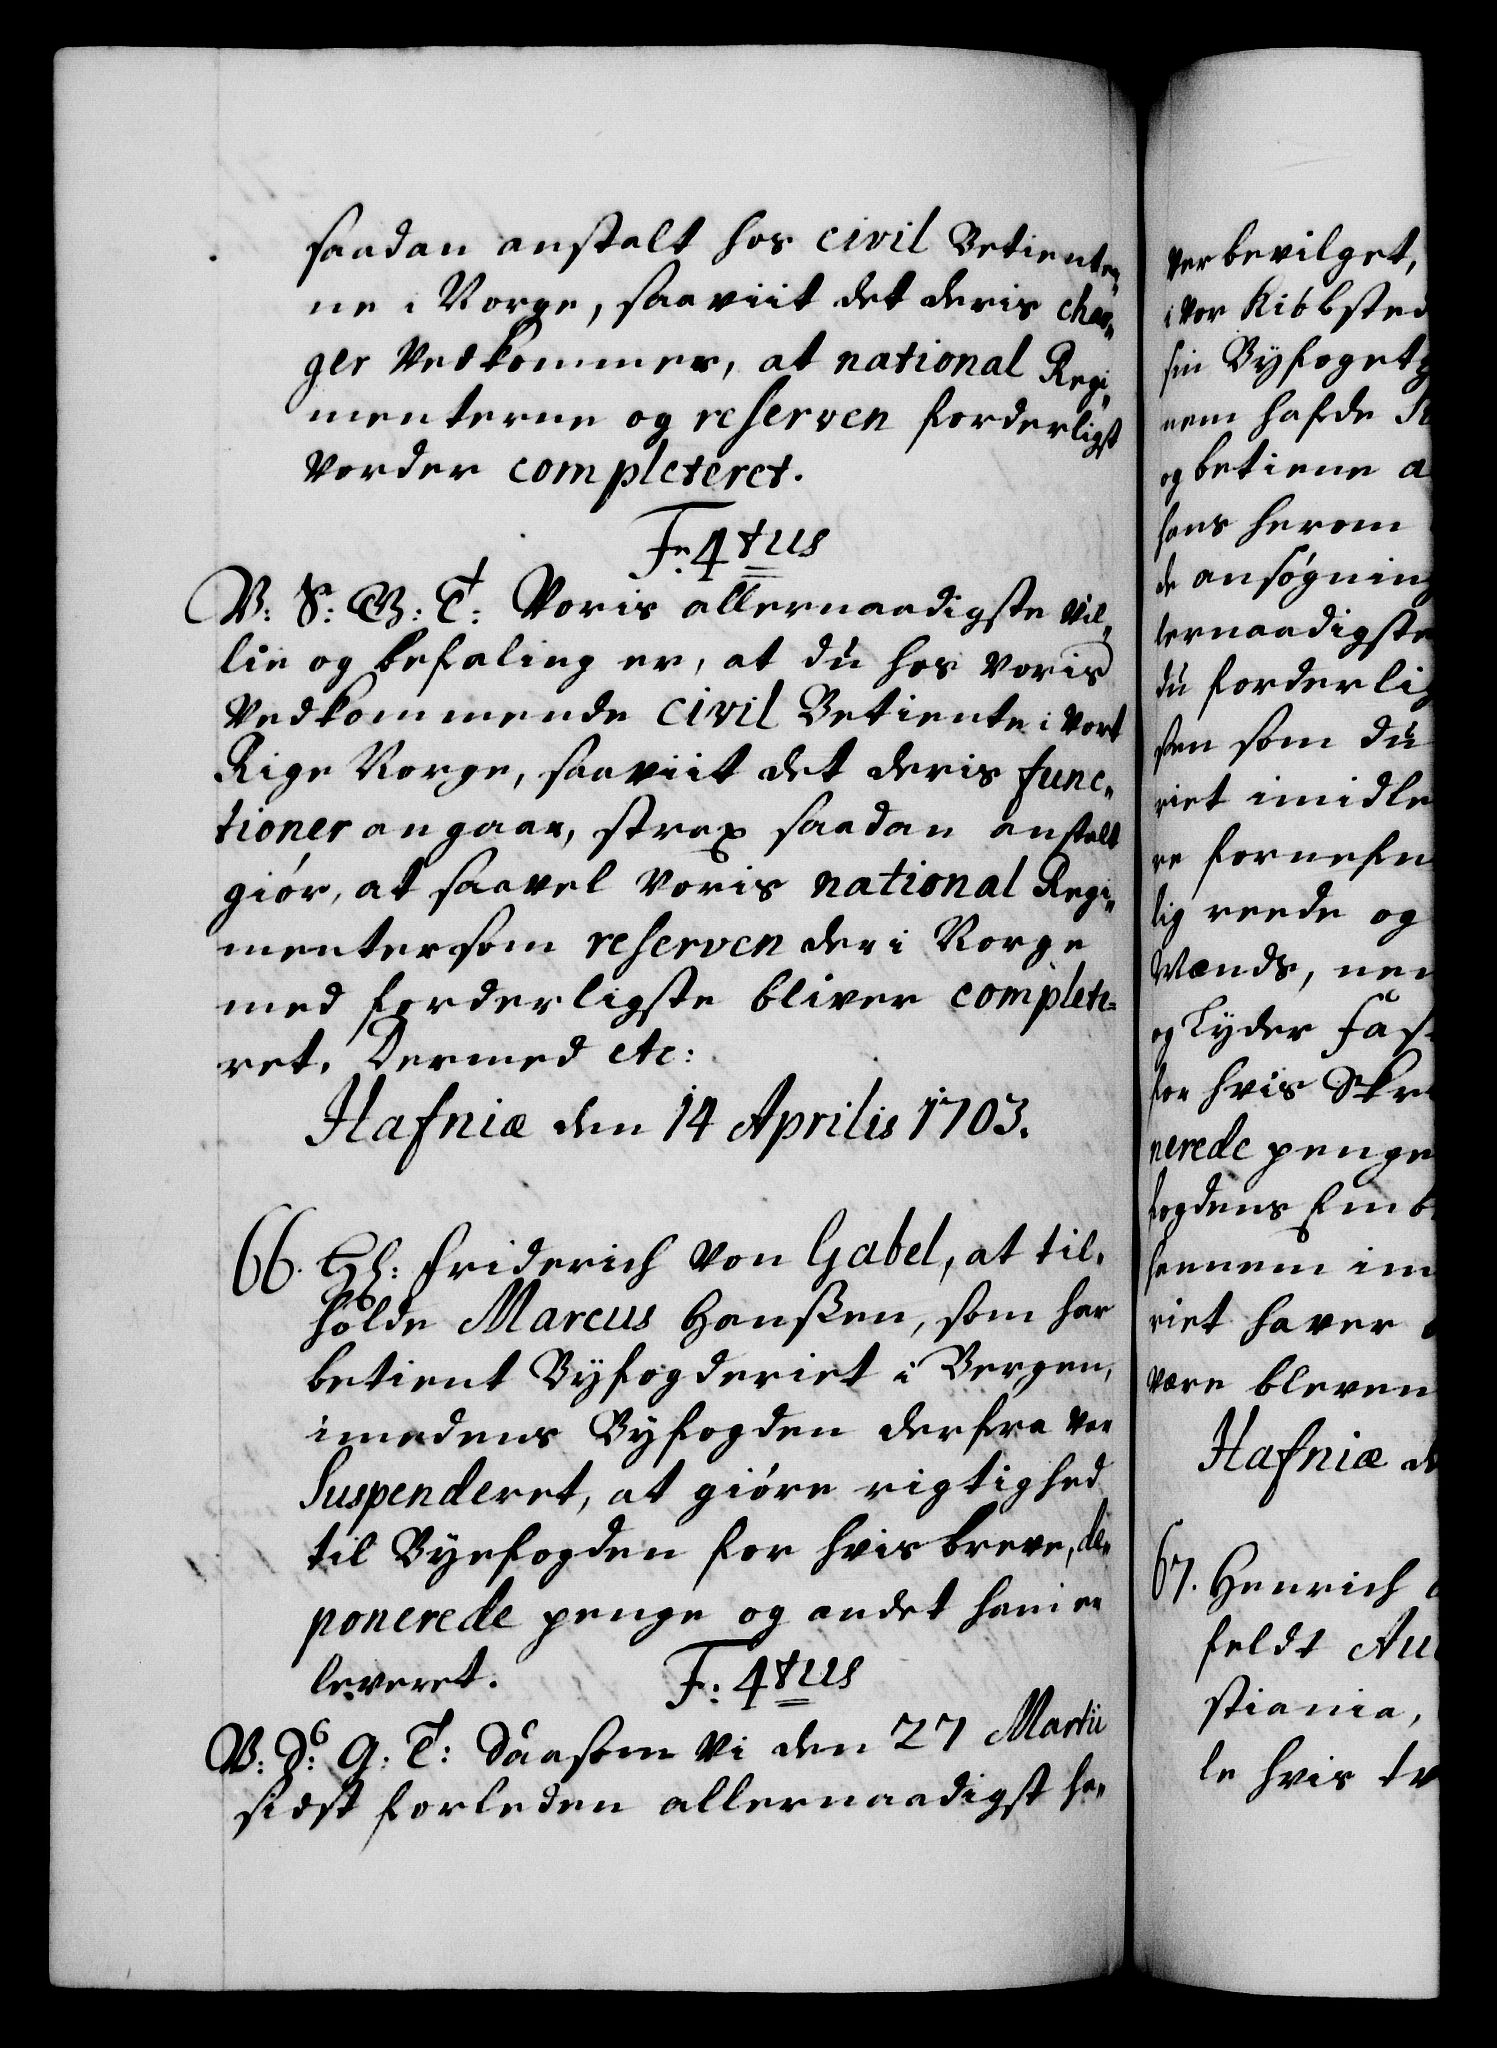 saadan anstalt hos civil Betiente„
ne i Norge, saaviit det deris char„
ger vedkommer, at national Regi„
menterne og reserven forderligst
vorder completeret.
F: 4tus
V: S: G: T: Voris allernaadigste vil„
lie og befaling er, at du hos voris
vedkommende civil Betiente i vort
Rige Norge, saaviit det deris func„
tioner angaar, strax saadan anstalt
giør, at saavel voris national Regi„
menter som reserven der i Norge
med forderligste bliver complete=
ret. Dermed etc:
Hafniæ den 14 Aprilis 1703.
66. Hl: Friderich von Gabel, at til„
holde Marcus Hanßen, som har
betient Byfogderiet i Bergen,
imedens Byfogden derfra var
Suspenderet, at giøre rigtighed
til Byefogden for hvis breve, de„
ponerede penge og andet ham er
leveret.
F: 4tus
V: S: G: T: Saasom vi den 27 Martii
sidst forleden allernaadigst ha„
ver bevilget,
i vor Kiøbsted
sin Byfoget
nem hafde
og betiene
hans herom
de ansøgning
lernaadigste
du forderlig
sen som du
riet imidle
re fornefn
lig reede og
Vænds,
og Tyder
for hvis Skr
nerede penge
fogdens Emb
hannem im
riet haver
være bleven
Hafniæ de
67. Henrich
feldt Au
stiania,
le hvis tv